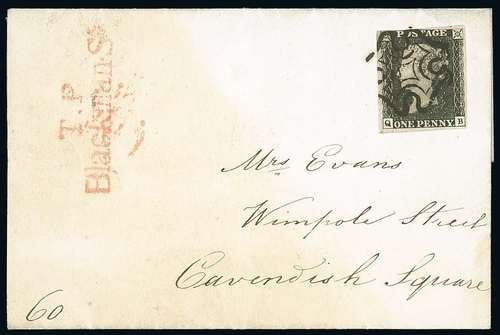 T.P
Blackman St
POSTAGE
Q B
ONE PENNY
Mrs Evans
Wimpole Street
Cavendish Square
60